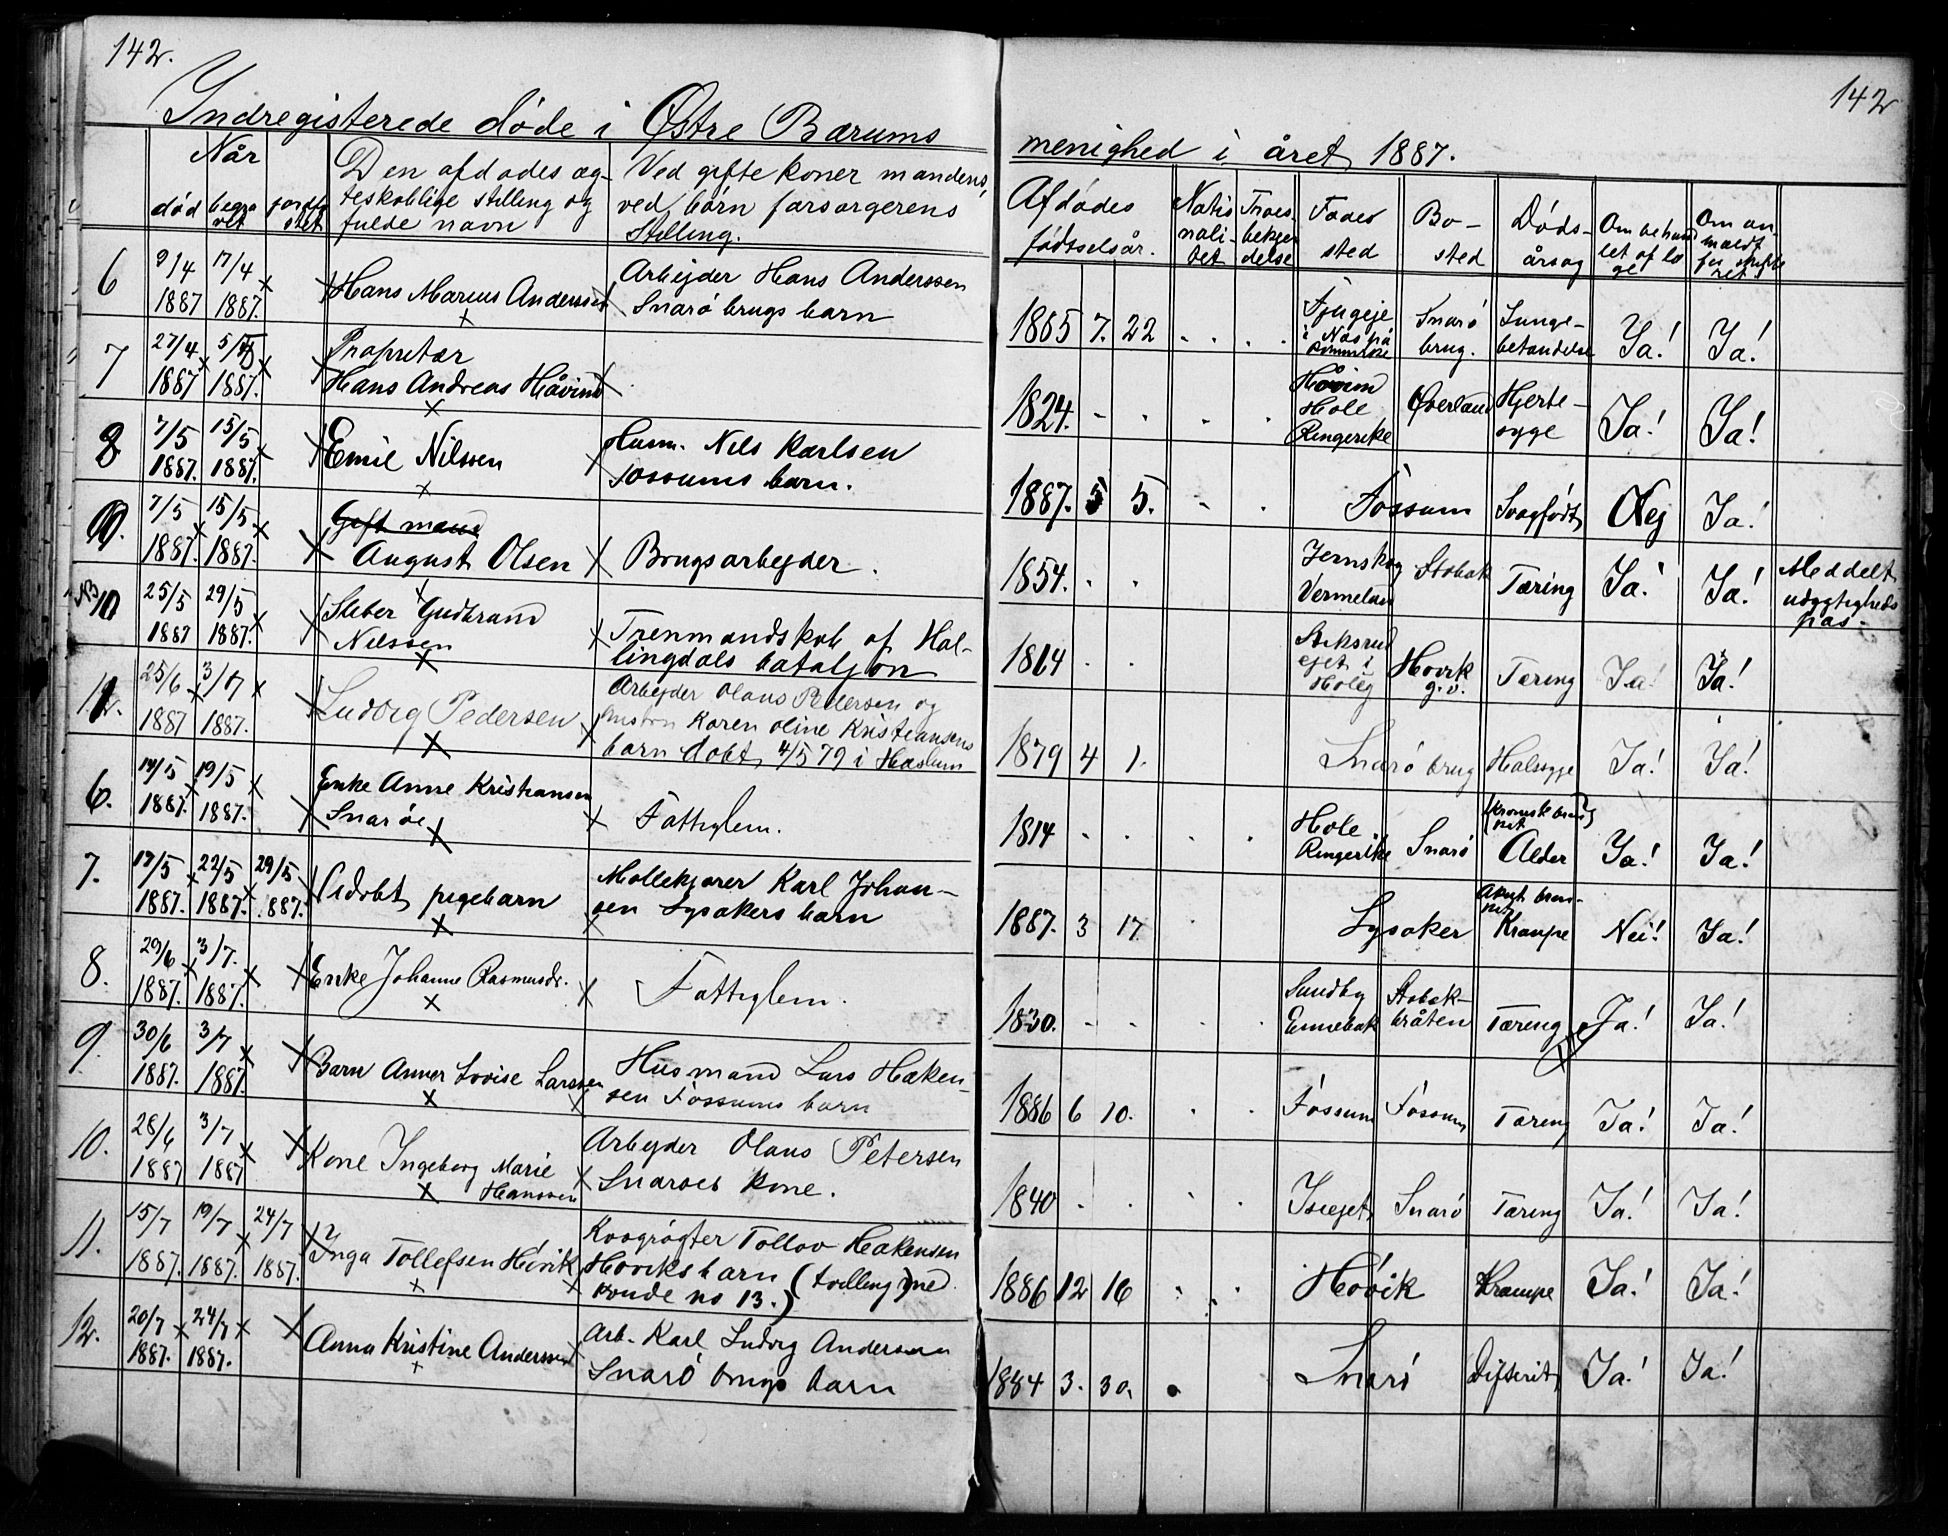 142.
142
Indregisterede døde i Østre Bærums
menighed i året 1887.
Når
død
begra
vet
jordfæ
stet
Den afdødes æg-
teskablige stilling og
fulde navn
Ved gifte koner mandens,
ved børn forsørgerens
Stilling.
Afdødes
fødselsår.
Natio
nali-
tet
Troes-
bekjen
delse
Føde
sted
Bo-
sted
Døds-
årsag
Om behand
let af læ
ge
Om an-
meldt
for skifte
ret
6
9/4
1887
17/4
1887.
Hans Marius Anderssen
Arbejder Hans Anderssen
Snarø brugs barn
1865 7. 22
Snarø
brug.
Lunge-
betændelse
Ja!
Ja!
7
27/4
1887
5/5
1887.
Proprietær
Hans Andreas Høvind
1824.
Høvind
Hole
Ringerike
Øverland
Hjerte-
syge
Ja!
Ja!
8
7/5
1887.
15/5
1887.
Emil Nilssen
Husm. Nils Karlsen
Fossums barn.
1887. 5 5.
Fossum
Svagfødt
Nej
Ja!
9.
7/5
1887.
15/5
1887.
Gift mand
August Olsen
Brugsarbejder.
1854.
Jernskog
Vermeland
Stabæk
Tæring
Ja!
Ja!
Meddelt
udygtigheds
pas.
10
25/5
1887
29/5
1887.
Sleber Gudbrand
Nilssen
Trenmandskab af Hal-
lingdals bataljon
1814
Hole
Høvik
g.v.
Tæring
Ja!
Ja!
11.
25/6
1887
3/7
1887.
Ludvig Pedersen
Arbejder Olaus Pedersen og
hustru Karen Oline Kristiansens
barn døbt 4/5 79 i Haslum
1879 4 1.
Snarø brug
Halssyge
Ja!
Ja!
6.
14/5
1887.
19/5
1887.
Enke Anne Kristiansen
Snarøe
Fattiglem.
1814
Hole
Ringerike
Snarø
Alder
Ja!
Ja!
7.
17/5
1887.
22/5
1887.
29/5
1887.
Udøbt pigebarn
Møllekjører Karl Johan-
sen Lysakers barn
1887. 3 17.
Lysaker
Krampe
Nei!
Ja!
8.
29/6
1887.
3/7.
1887.
Enke Johanne Rasmusdr.
Fattiglem.
1830.
Sundby
Ennebak
Stabæk-
bråten
Tæring
Ja!
Ja!
9.
30/6
1887.
3/7
1887.
Barn Anna Lovise Larssen
Husmand Lars Håken-
sen Fossums barn
1886 6 10.
Fossum
Fossum
Tæring
Ja!
Ja!
10.
28/6
1887
3/7
1887
Kone Ingeborg Marie
Hanssen
Arbejder Olaus Petersen
Snarøes kone.
1840
Snarø
Tæring
Ja!
Ja!
11.
15/7
1887.
19/7
1887.
24/7
1887.
Inga Tollefsen Høvik
Kvægrøgter Tollov Håkensen
Høviks barn (tvilling) med
kvinde no 13.)
1886 12 16
Høvik
Krampe
Ja!
Ja!
12.
20/7
1887.
24/7
1887.
Anna Kristine Anderssen
Arb. Karl Ludvig Anderssen
Snarø brugs barn
1884 3. 30.
Snarø
Difterit
Ja!
Ja!